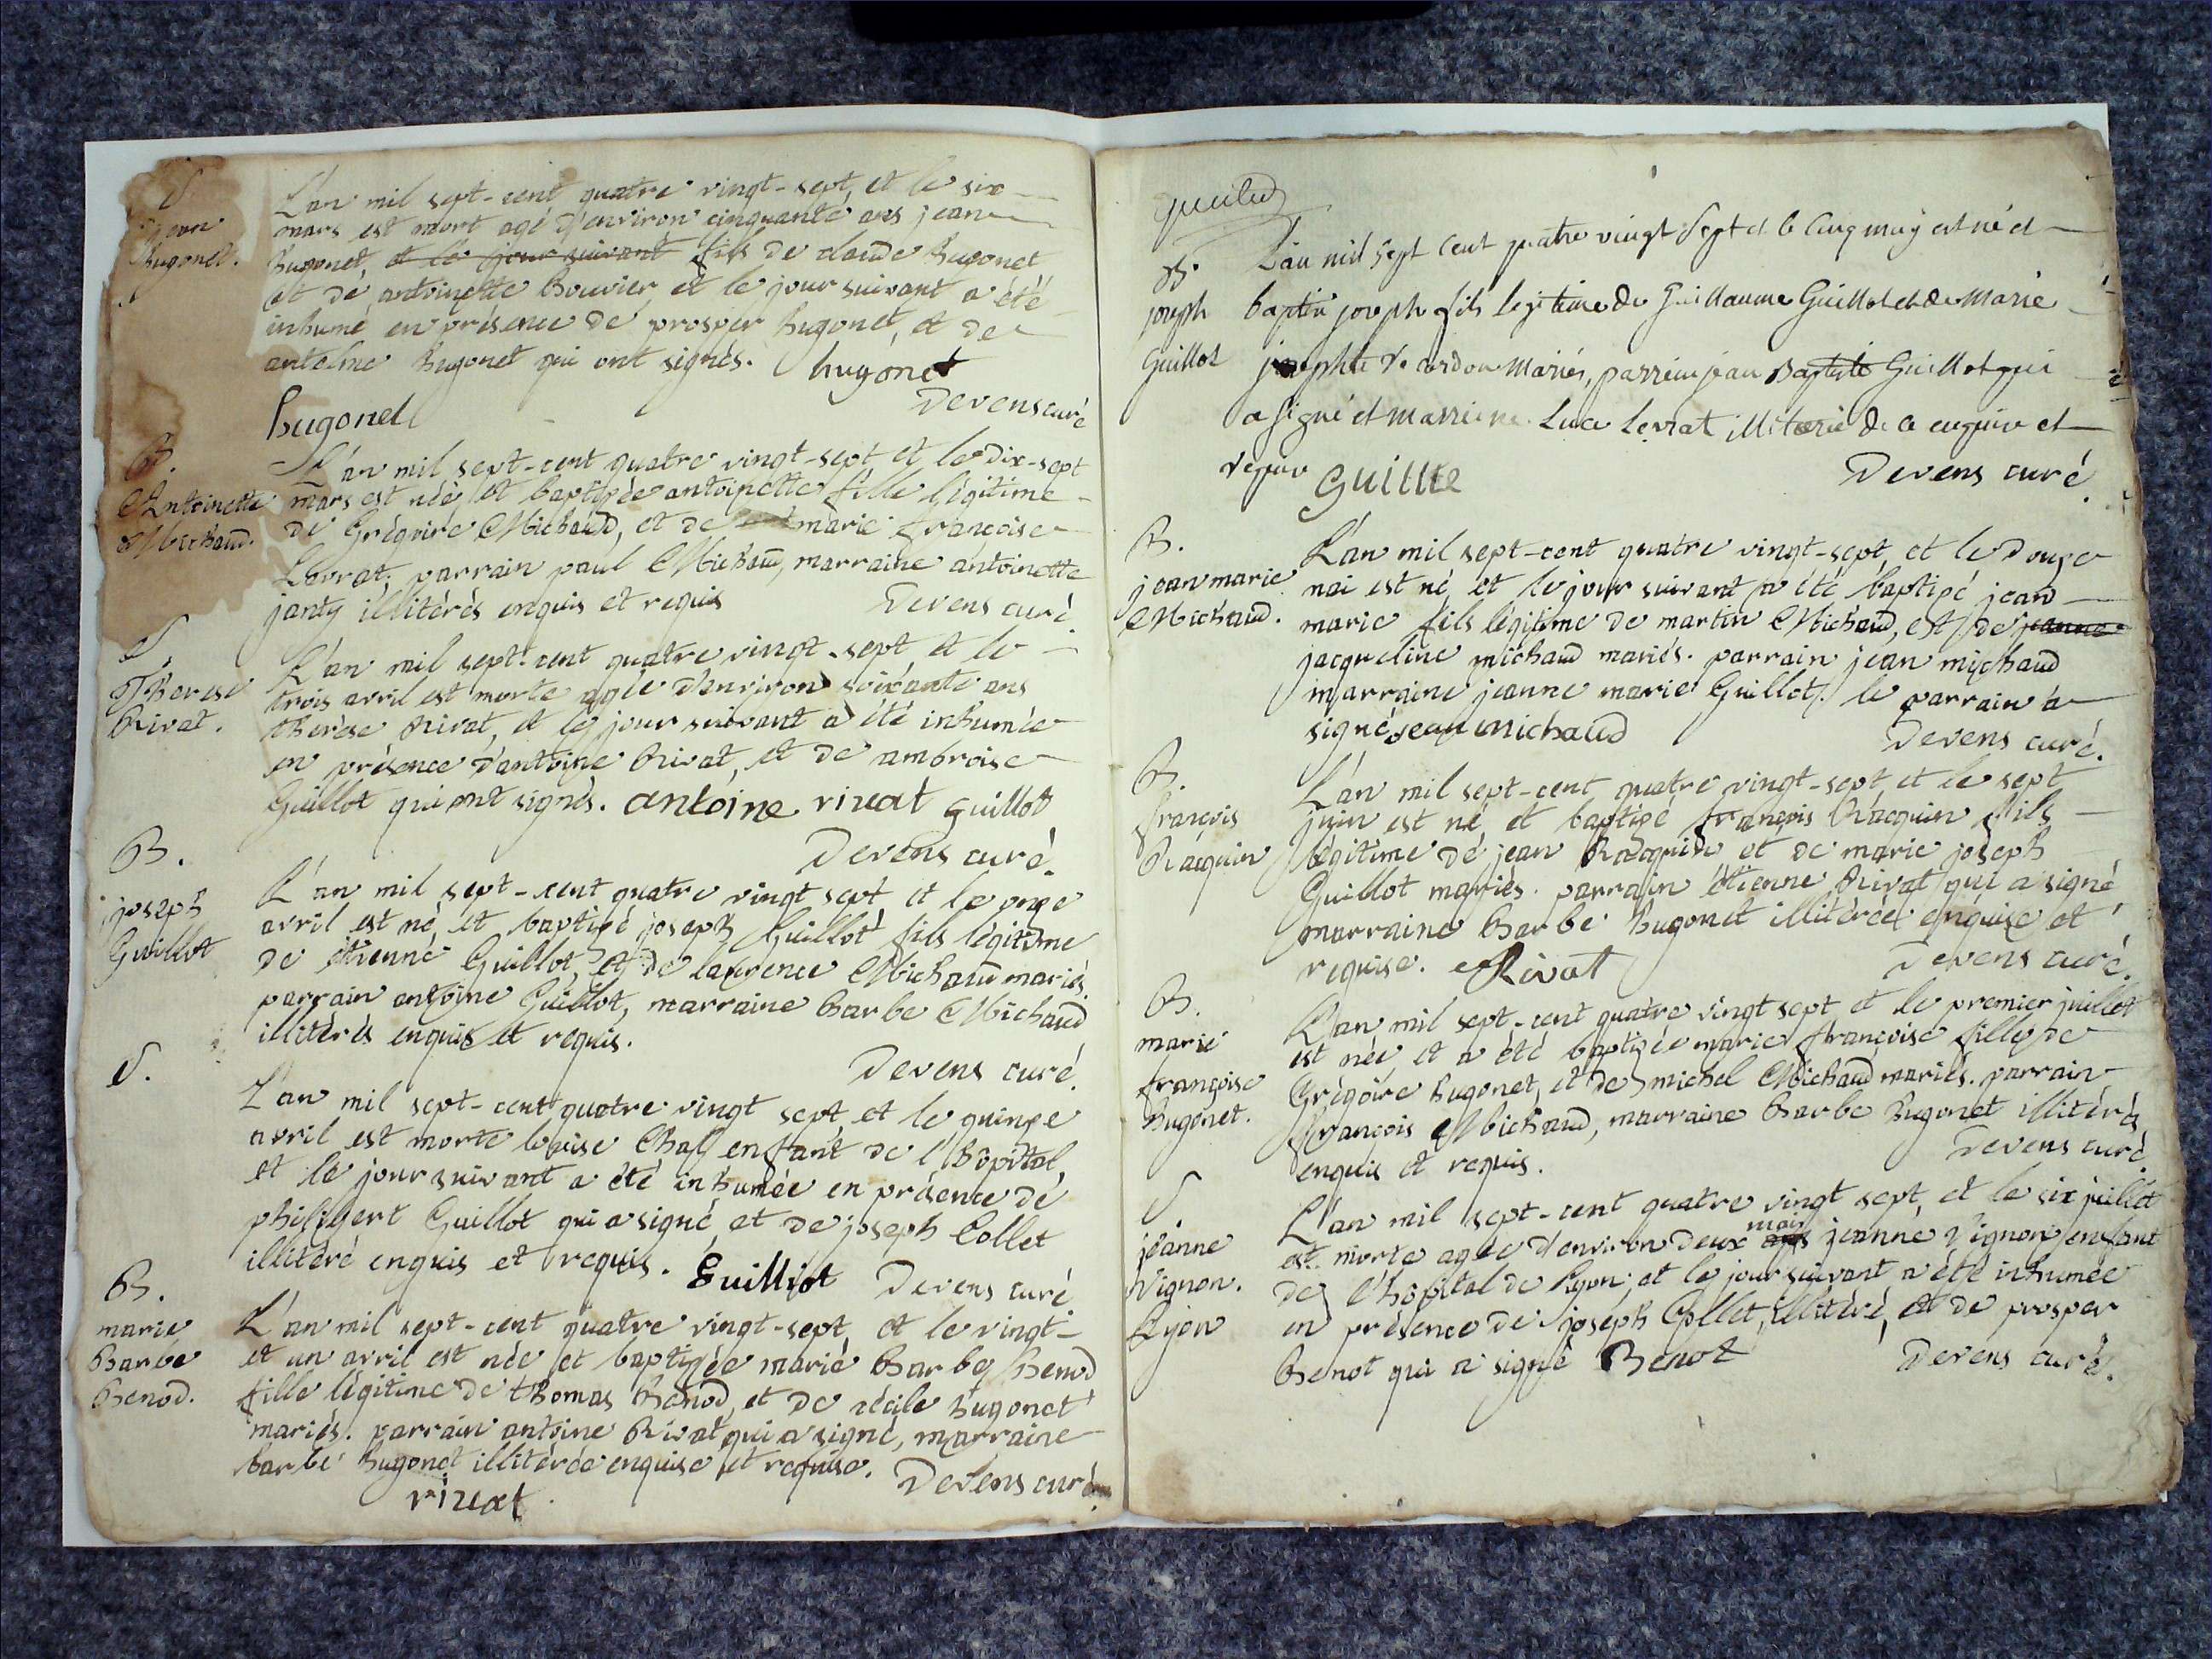 S
jean
hugonet.
L'an mil sept-cent quatre vingt-sept, et le six
mars est mort agé d'environ cinquante ans jean
hugonet, et le jour suivant fils de claude hugonet
et de antoinette Bouvier, et le jour suivant a été
inhumé en présence de prosper hugonet, et de
antelme hugonet qui ont signés. hugonet
hugonet
Devens curé
B.
Antoinette
Michaud.
L'an mil sept-cent quatre vingt-sept, et le dix-sept
mars est née et baptizée antoinette fille légitime
de Grégoire Michaud, et de marie françoise
Levrat. parrain paul Michaud, marraine antoinette
janty illitérés enquis et requis
Devens curé.
S.
Therese
Rivat.
L'an mil sept-cent quatre vingt-sept, et le
trois avril est morte agée d'environ soixante ans
thérèse Rivat, et le jour suivant a été inhumée
en présence d'antoine Rivat, et de ambroise
Guillot qui ont signés. antoine rivat guillot
Devens curé.
B.
joseph
Guillot
L'an mil sept-cent quatre vingt sept, et le onze
avril est né, et baptizé joseph Guillot fils légitime
de étienne Guillot, et de laurence Michaud mariés.
parrain antoine Guillot, marraine barbe Michaud
illitérés enquis et requis.
Devens curé.
S.
L'an mil sept-cent quatre vingt sept, et le quinze
avril est morte louise Chal enfant de l'hôpital,
et le jour suivant a été inhumée en présence de
philibert Guillot qui a signé, et de joseph Collet
illitéré enquis et requis. Guilliot Devens curé
B.
marie
Barbe
Benod.
L'an mil sept-cent quatre vingt-sept, et le vingt-
et un avril est née et baptizée marie Barbe Benod
fille légitime de thomas Benod, et de cécile hugonet
mariés. parrain antoine Rivat qui a signé, marraine
barbe hugonet illitérée enquise et requise.
rivat
Devens curé.
B.
joseph
Guillot
L'an mil sept cent quatre vingt sept et le cinq may est né et
baptisé joseph fils legitime de Guillaume Guillot et de Marie
josephte verardon Mariés, parrein jean Baptiste Guillot qui
a signé et marreine Luce levrat illiterée de ce enquise et
requise
Devens curé.
B.
jean marie
Michaud.
L'an mil sept-cent quatre vingt-sept, et le douze
mai est né, et le jour suivant a été baptizé jean
marie fils légitime de martin Michaud, et de jeanne
jacqueline michaud mariés. parrain jean michaud
marraine jeanne marie Guillot. le parrain a
signé. jean michaud
Devens curé.
B.
françois
Racquin
L'an mil sept-cent quatre vingt-sept, et le sept
juin est né, et baptizé françois Racquin fils
légitime de jean Racquin et de marie joseph
Guillot mariés. parrain étienne Rivat qui a signé,
marraine barbe hugonet illitérée enquise et
requise. Rivat
Devens curé.
B.
marie
françoise
hugonet.
L'an mil sept-cent quatre vingt sept, et le premier juillet
est née et a été baptizée marie françoise fille de
Grégoire hugonet, et de michel Michaud mariés. parrain
françois Michaud, marraine barbe hugonet illitérés
enquis et requis.
Devens curé.
S
jeanne
Vignon.
Lyon
L'an mil sept-cent quatre vingt sept, et le six juillet
est morte agée d'environ deux ans mois jeanne Vignon enfant
de l'hôpital de Lyon, et le jour suivant a été inhumée
en présence de joseph Collet, illitéré, et de prosper
Benot qui a signé Benot
Devens curé.